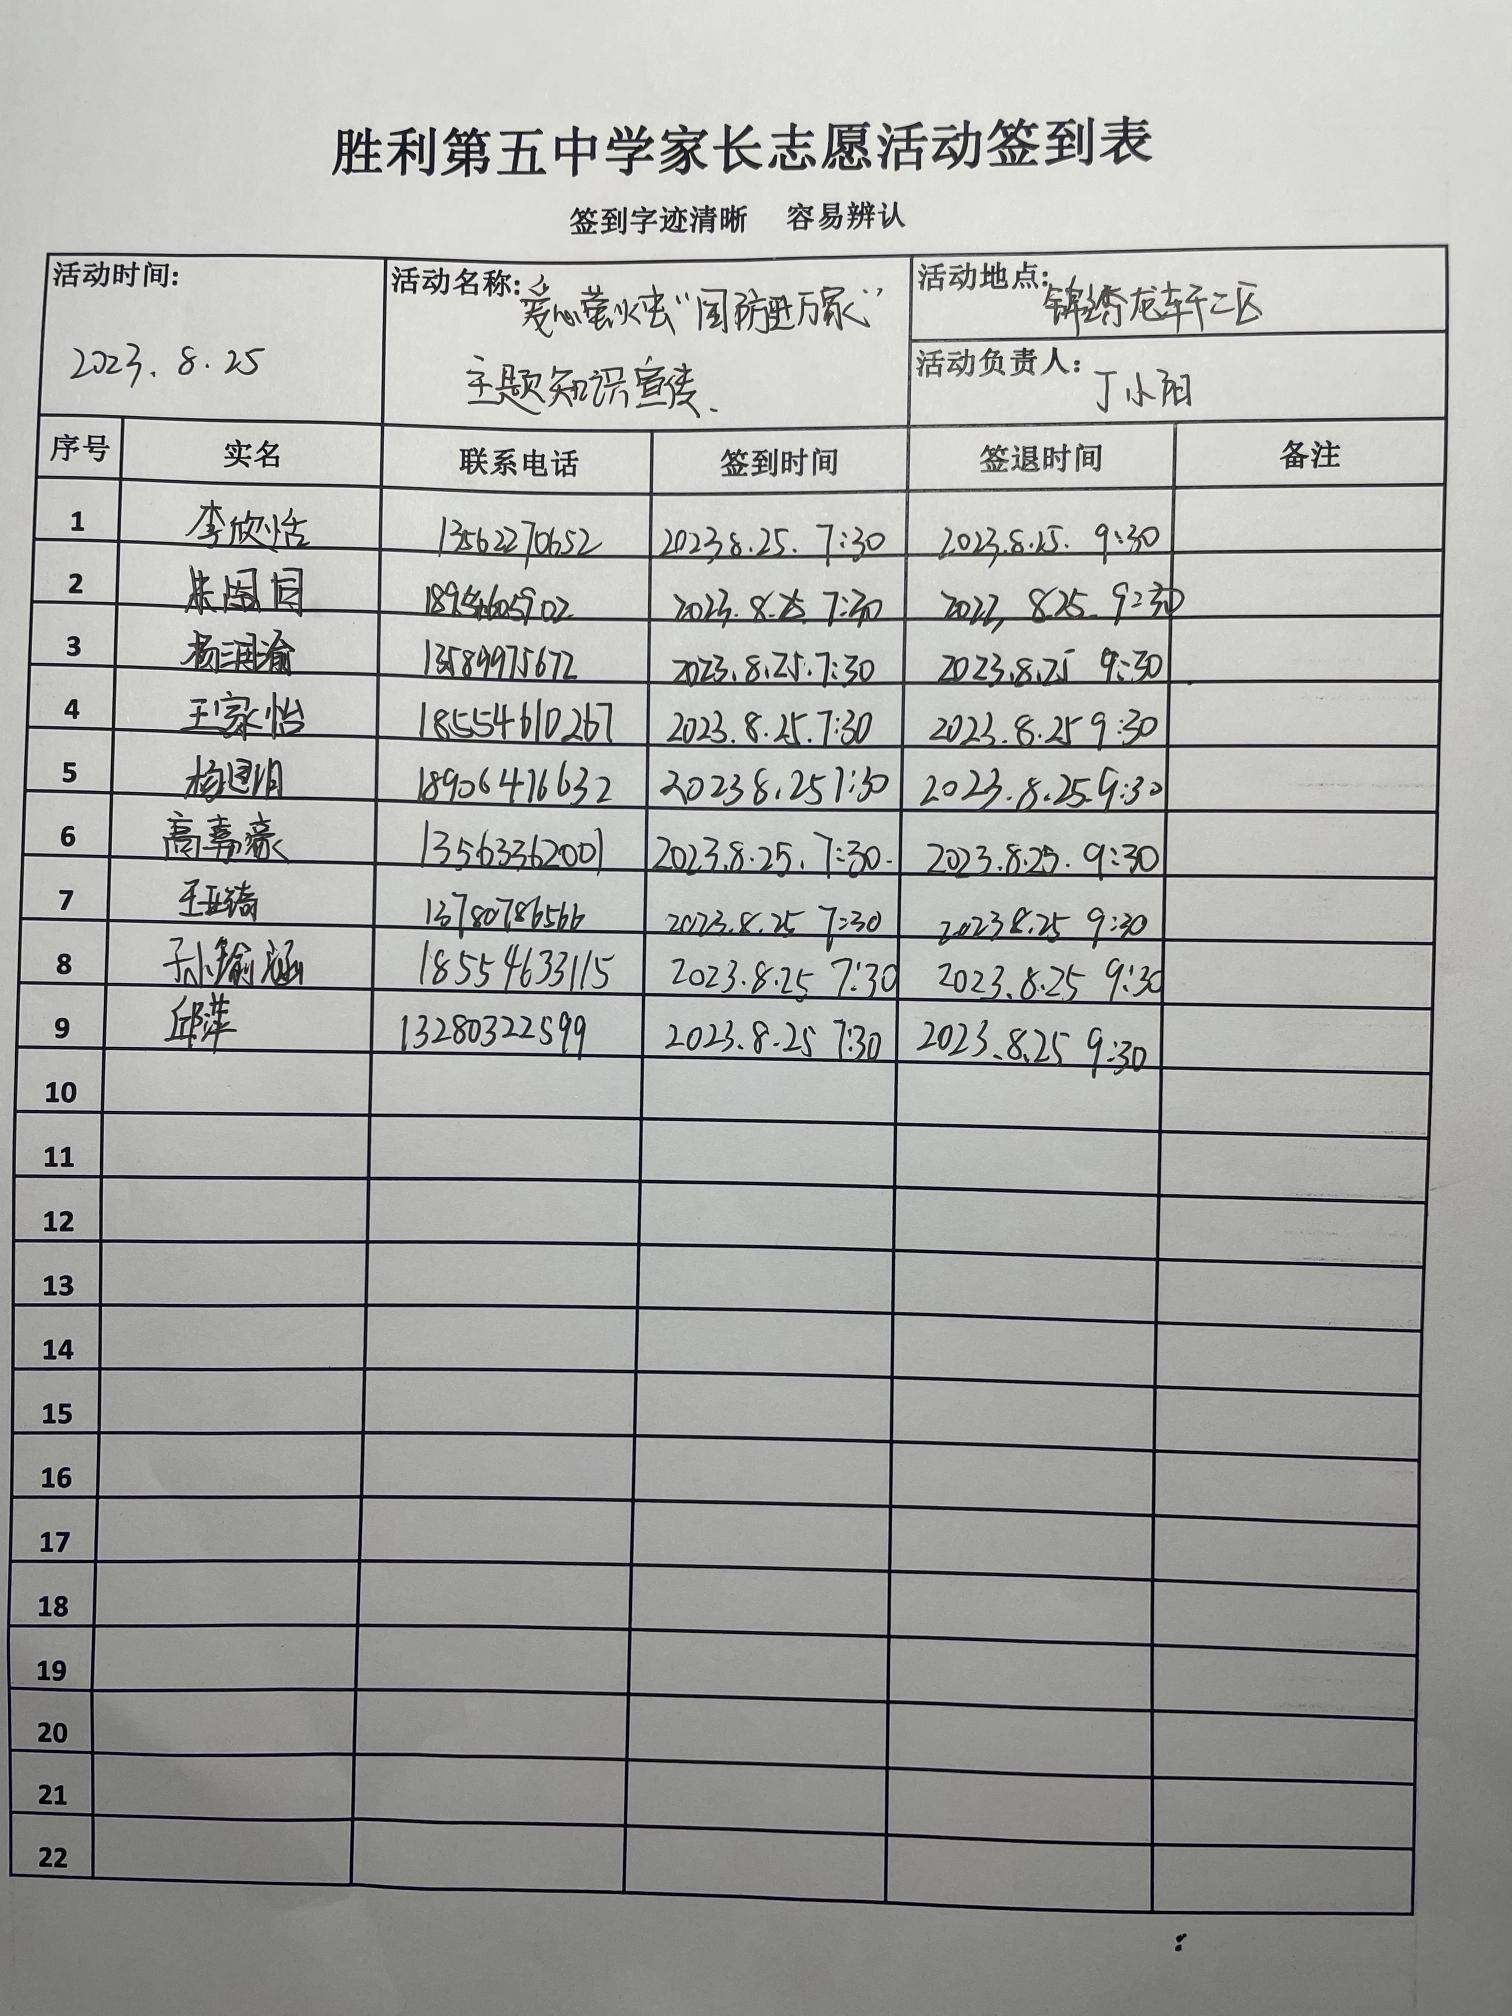 胜利第五中学家长志愿活动签到表
签到字迹清晰 容易辨认
活动时间: 2023.8.25
活动名称: 爱心萤火虫“国防进万家”
主题知识宣传.
活动地点: 锦绣龙轩二区
活动负责人: 丁小阳
序号 实名 联系电话 签到时间 签退时间 备注
1 李欣恬 13562270652 2023.8.25. 7:30 2023.8.25. 9:30
2 18954605902 2023.8.25 7:30 2023, 8.25 9:30
3 杨润渝 13589975672 2023.8.25.7:30 2023.8.25 9:30
4 王家怡 18554610267 2023.8.25.7:30 2023.8.25 9:30
5 18906476632 2023 8.25 7:30 2023.8.25.9:30
6 高嘉豪 13563362001 2023.8.25.7:30. 2023.8.25. 9:30
7 王亚琦 13780786566 2023.8.25 7:30 2023 8.25 9:30
8 孙瑜涵 18554633115 2023.8.25 7:30 2023.8.25 9:30
9 邱萍 13280322599 2023.8.25 7:30 2023.8.25 9:30
10
11
12
13
14
15
16
17
18
19
20
21
22